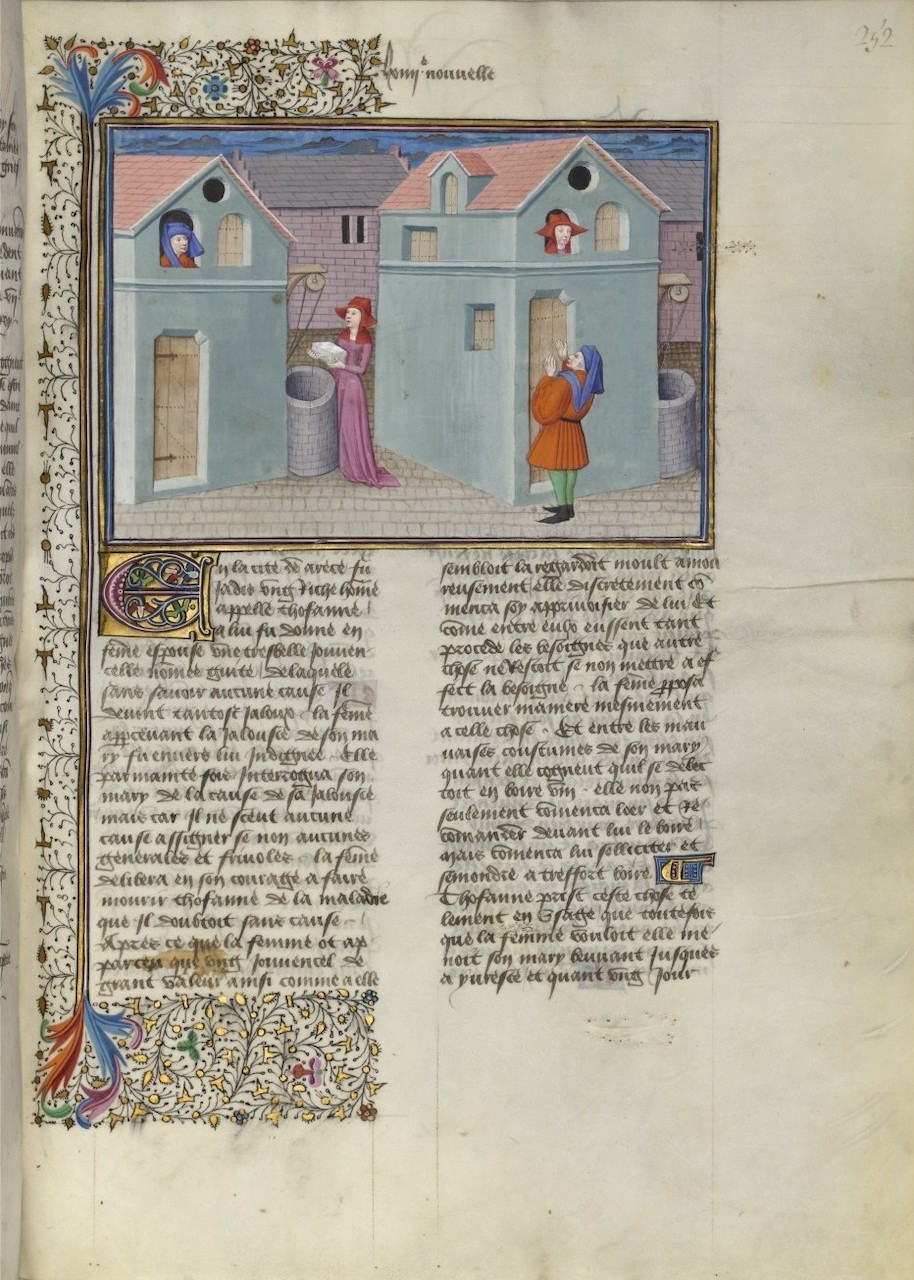 252
nouvelle
En la cite de arece fu
Jadis vng Riche hōme
appelle thofanne /
a lui fu donne en
fēme espouse vne tresbelle Jouuen
celle nōmee guite / de laquele
sans sauoir aucune cause Il
deuint tantost Jaloux · la fēme
apperceuant la Jalousie de son ma
ry fu enuers lui Indignee · Elle
par mainte fois Interrogua son
mary de la cause de sa Jalousie
mais car Il ne sceut aucune
cause assigner se non aucunes
generales et friuoles · la fēme
delibera en son courage a faire
mourir thofanne de la maladie
que Il doubtoit sans cause ·
Apres ce que la femme ot ap
parceu que vng Jouuencel de
grant valeur ainsi comme a elle
sembloit la regardoit moult amou
reusement / elle discretement cō
menca soy appriuoisier de lui Et
cōme entre eulx eussent tant
procede les besoignes que autre
chose ne Restoit se non mettre a ef
fect la besoigne · la fēme pposa
trouuer maniere mesmement
a celle chose · Et entre les mau
uaises coustumes de son mary
quant elle cogneut quil se delec
toit en boire vin · elle non pas
seulement cōmenca loer et Re
cōmander deuant lui le boire
Mais cōmenca lui solliciter et
semondre a tresfort boire
Thofanne prist ceste chose te
lement en Vsage que toutefois
que la femme vouloit elle me
noit son mary beuuant Jusques
a yuresce et quant vng Jour